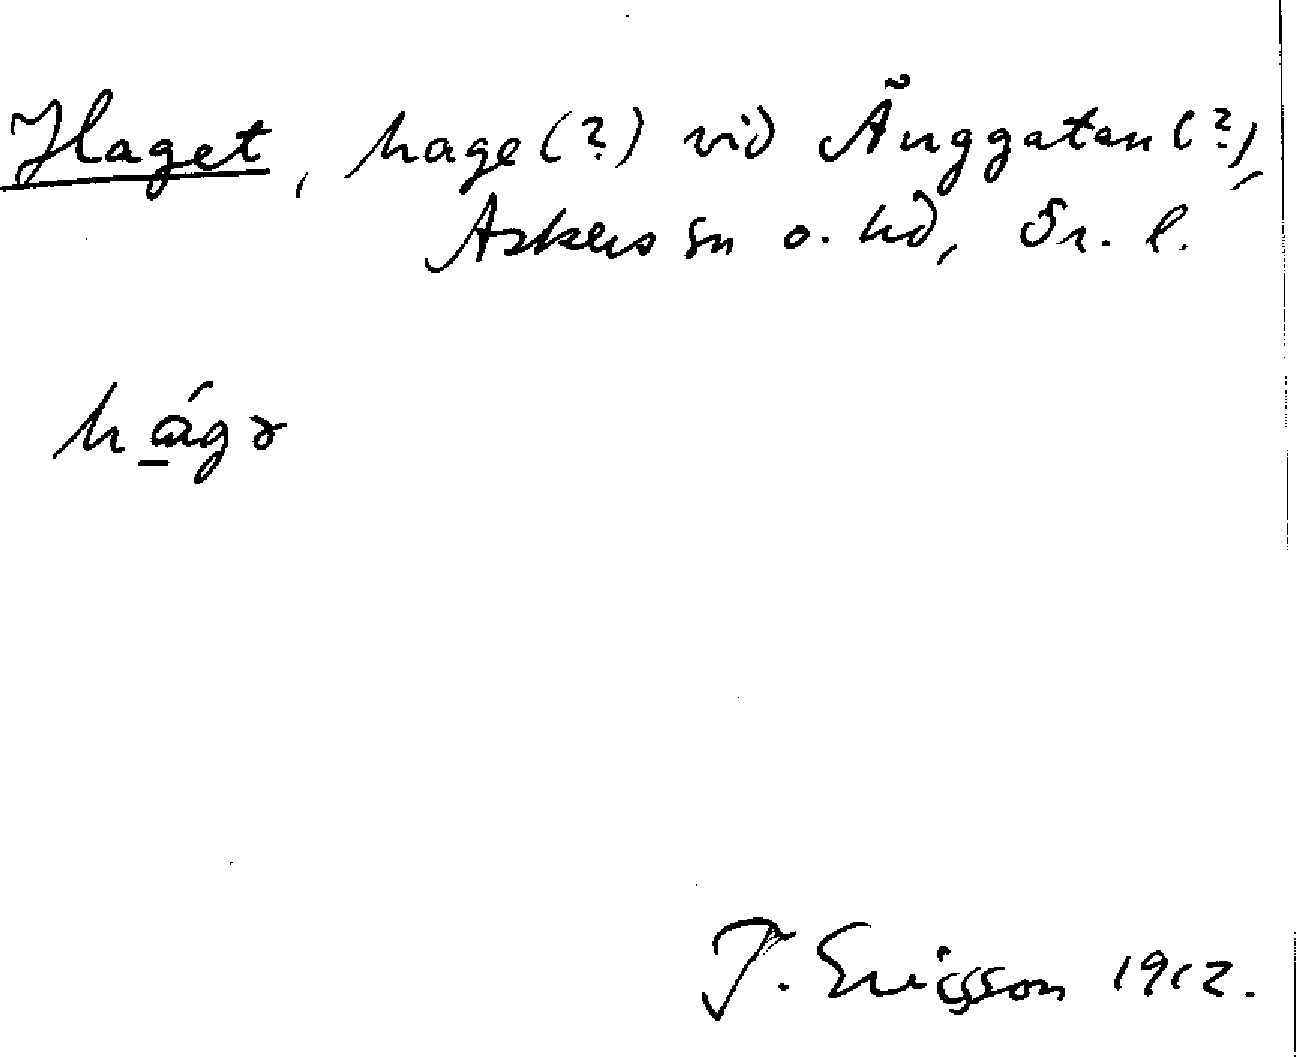 Haget, hage (?) vid Änggatan (?),
Askers sn o. hd, Ör. l.
hágə
J. Ericsson 1912.